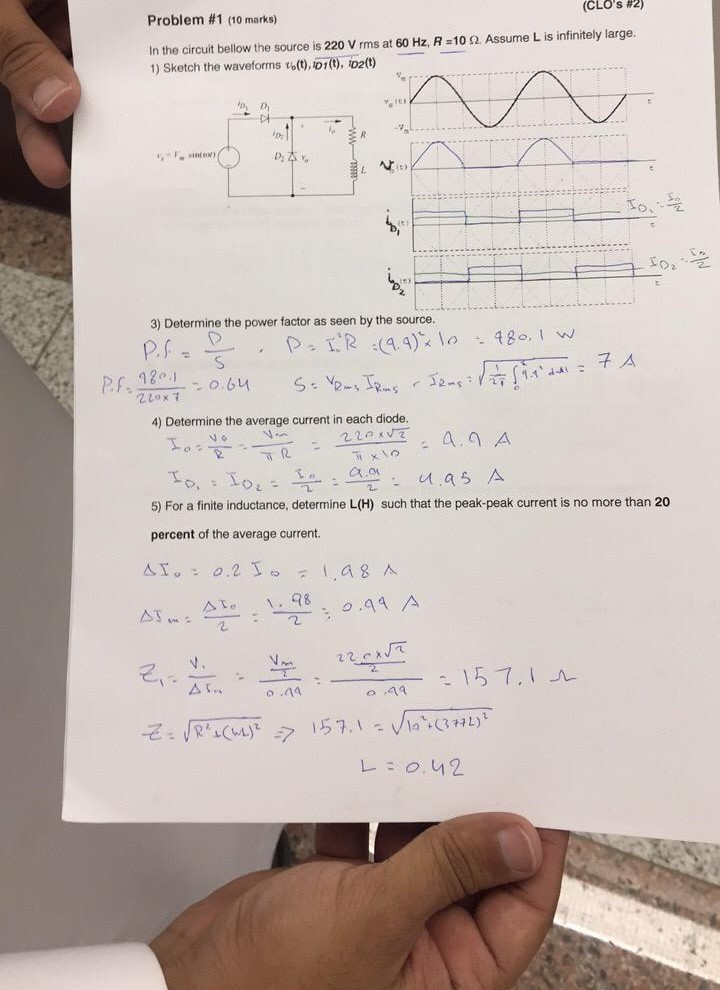 (CLO's #2)
Problem #1 (10 marks)
In the circuit bellow the source is 220 V rms at 60 Hz, R =10 Ω. Assume L is infinitely large.
1) Sketch the waveforms vo(t), iD1(t), iD2(t)
iD1 D1
iD2
io
R
vs = Vm sin(ωt)
D2
vo
L
Vm
(t)
-Vm
t
(t)
t
iD1 (t)
ID1 = Io/2
t
iD2 (t)
ID2 = Io/2
t
3) Determine the power factor as seen by the source.
P.f. = P/S , P = Io²R = (9.9)² x 10 = 980.1 W
P.f = 980.1/220x7 = 0.64 S = VRms IRms , IRms = √ = 7 A
4) Determine the average current in each diode.
Io = Vo/R = Vm/πR = 220x√2/πx10 = 9.9 A
ID1 = ID2 = Io/2 = 9.9/2 = 4.95 A
5) For a finite inductance, determine L(H) such that the peak-peak current is no more than 20
percent of the average current.
ΔIo = 0.2 Io = 1.98 A
ΔIm = ΔIo/2 = 1.98/2 = 0.99 A
Z1 = V1/ΔIm = Vm/2/0.99 = 220x√2/2/0.99 = 157.1 Ω
Z = √R²+(ωL)² => 157.1 = √10²+(377L)²
L = 0.42